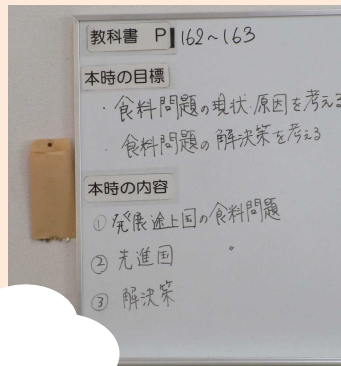 教科書 P 162~163
本時の目標
・食料問題の現状・原因を考える
・食料問題の解決策を考える
本時の内容
① 発展途上国の食料問題
② 先進国 〃
③ 解決策